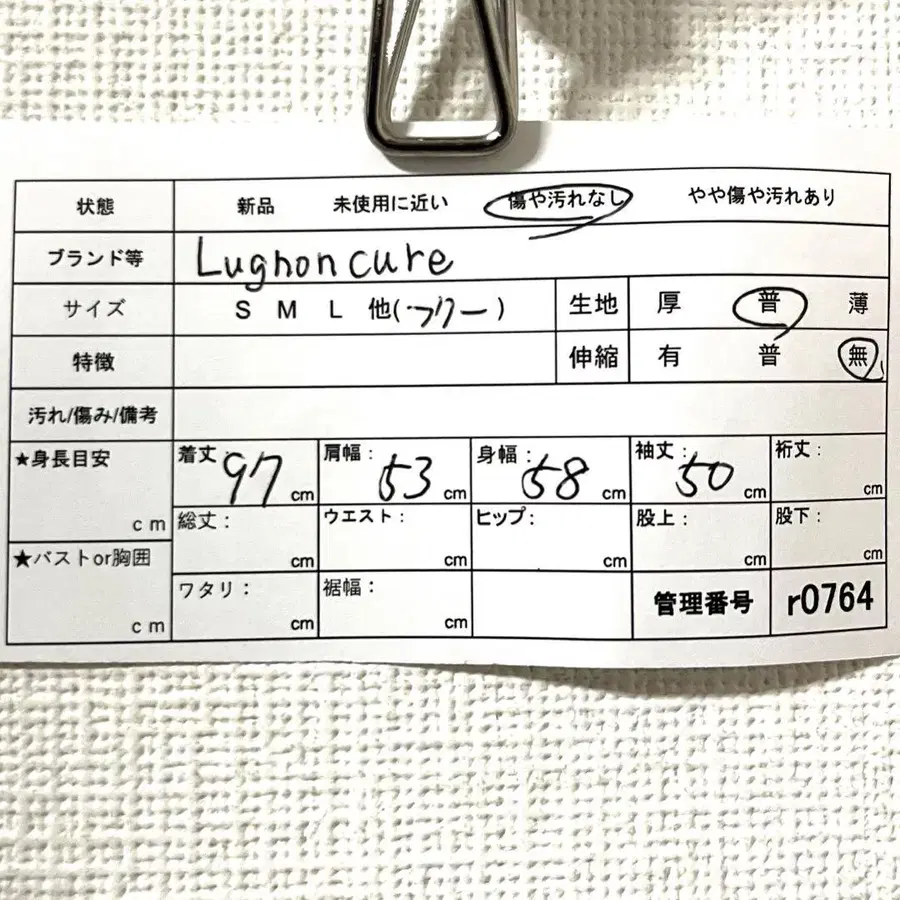 状態 新品 未使用に近い 傷や汚れなし やや傷や汚れあり
ブランド等 Lugnoncure
サイズ S M L 他(フリー) 生地 厚 普 薄
特徴 伸縮 有 普 無
汚れ/傷み/備考
★身長目安 cm 着丈 97 cm 肩幅: 53 cm 身幅: 58 cm 袖丈: 50 cm 裄丈: cm
総丈: cm ウエスト: cm ヒップ: cm 股上: cm 股下: cm
★バストor胸囲 cm ワタリ: cm 裾幅: cm 管理番号 r0764